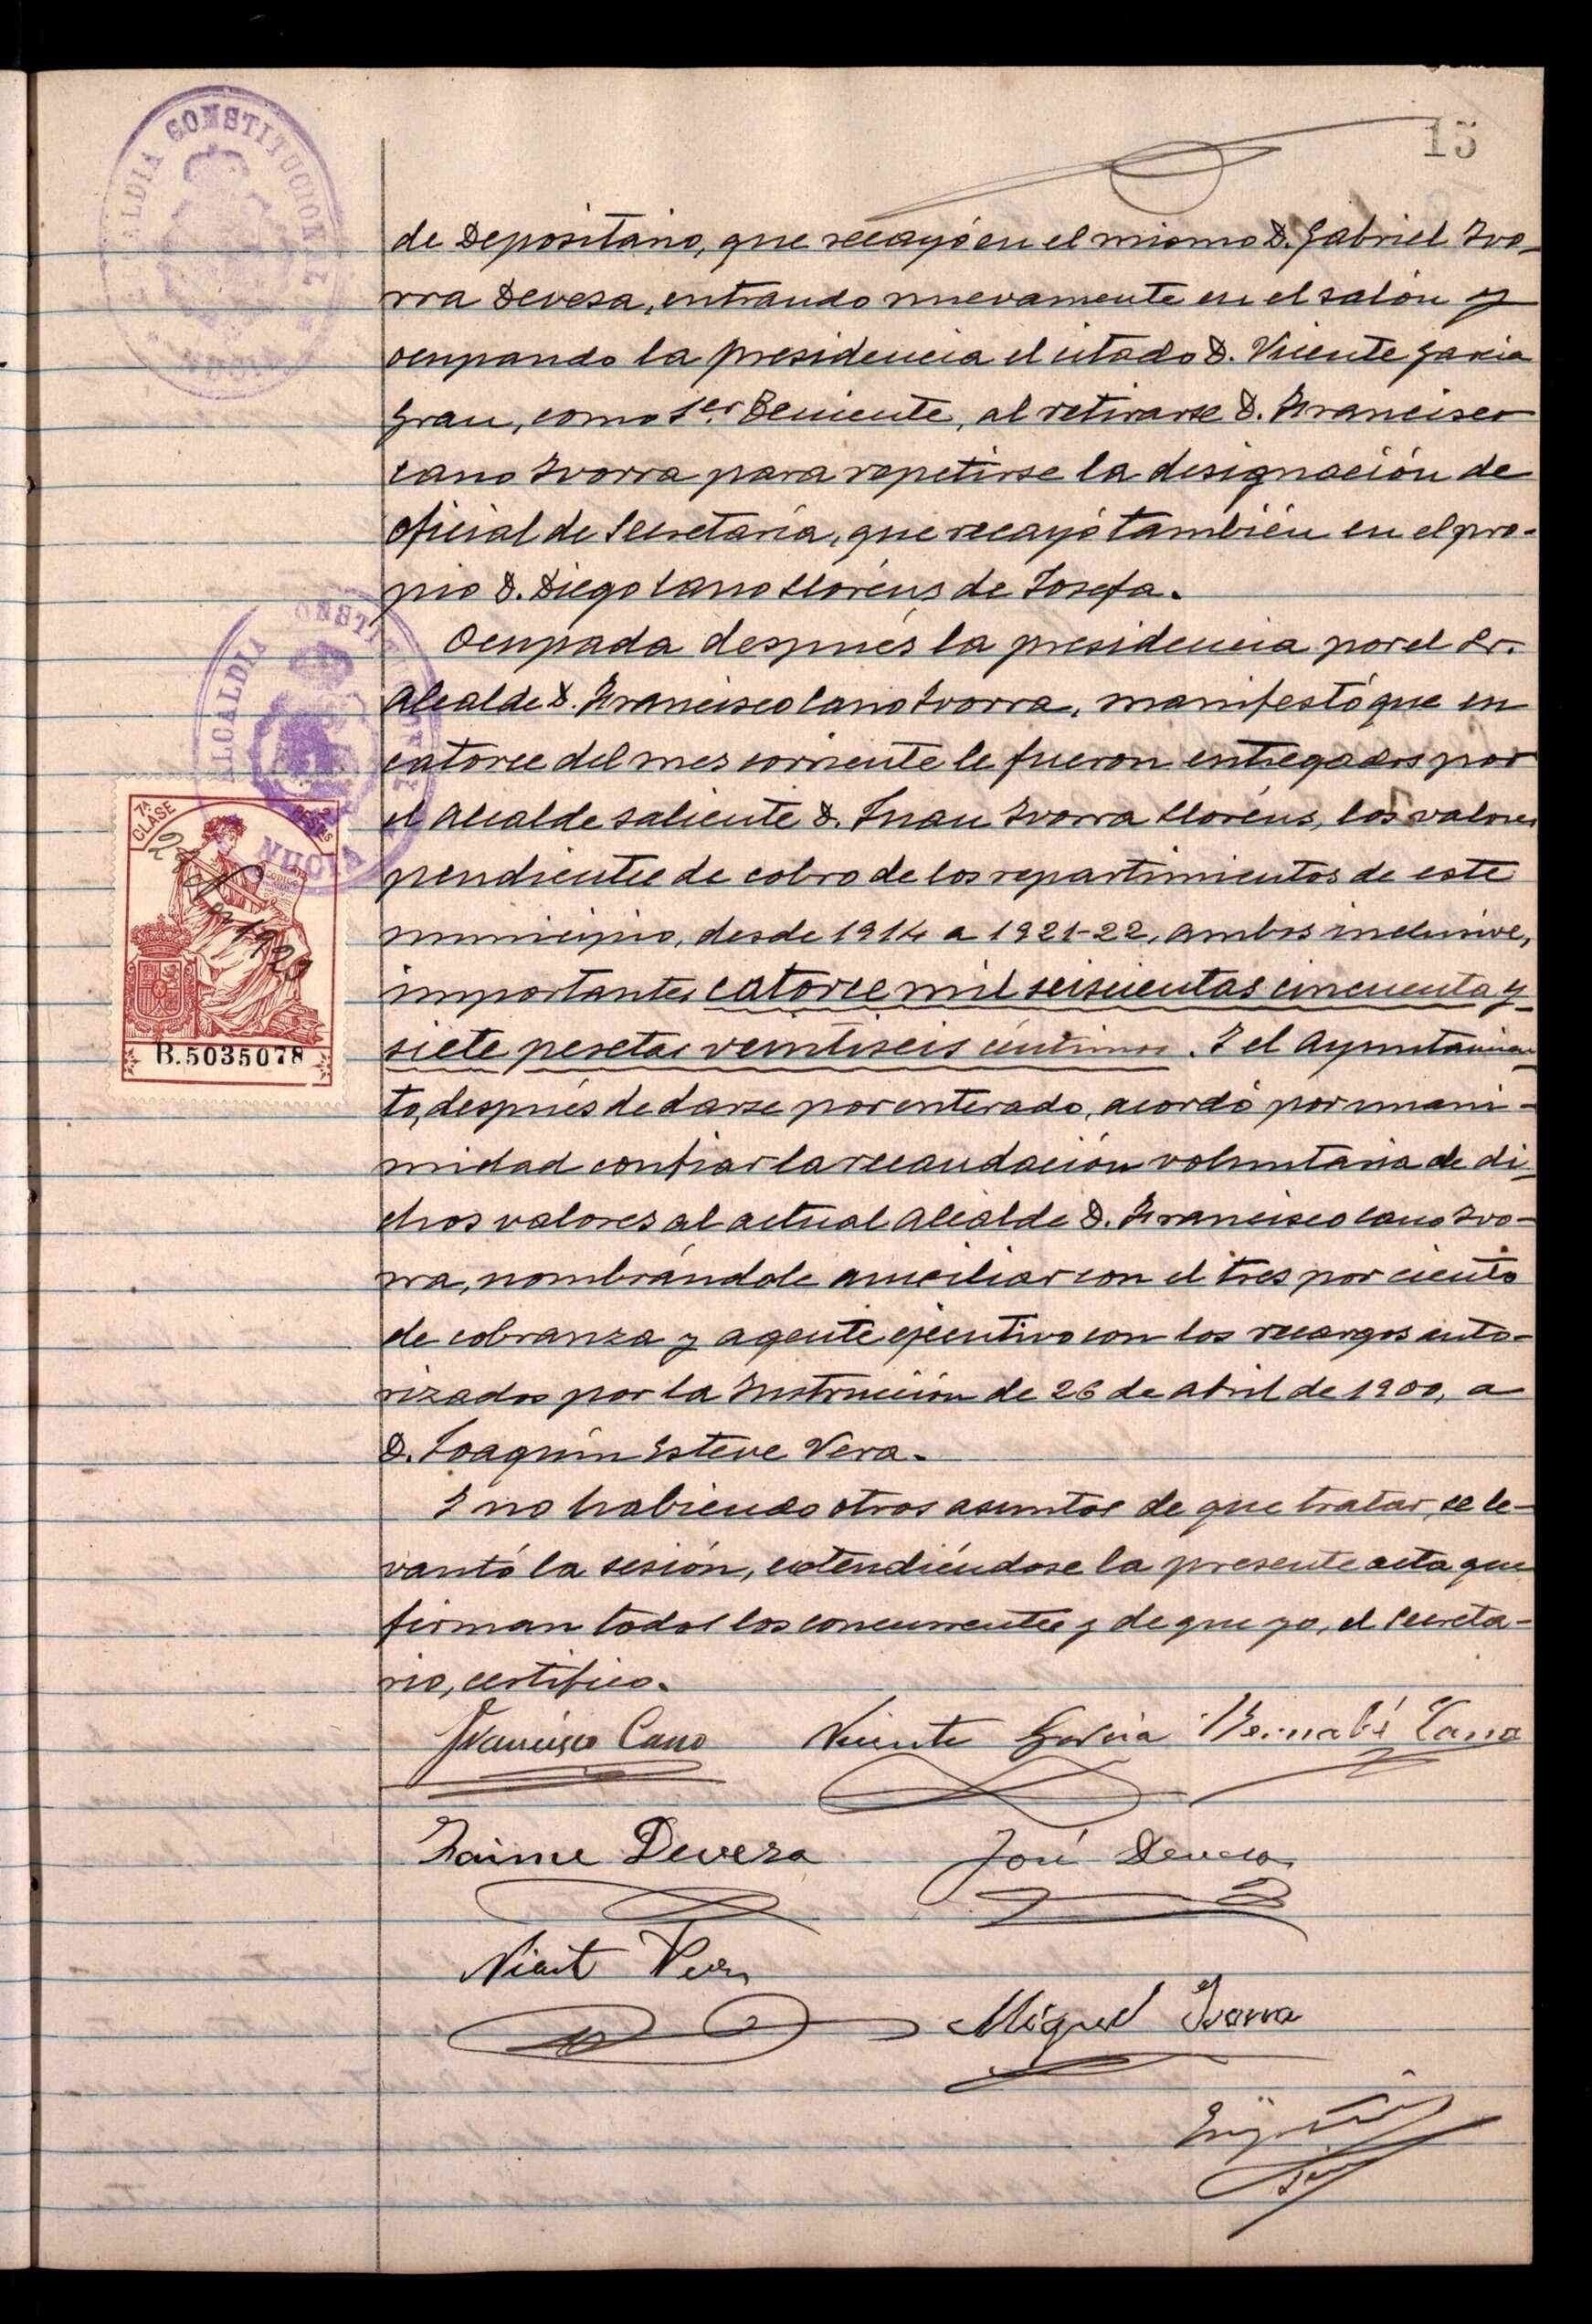 15
ALCALDIA CONSTITUCIONAL
NUCIA
de Depositario, que recayó en el mismo D. Gabriel Ivo-
rra Devesa, entrando nuevamente en el salón y
ocupando la presidencia el citado D. Vicente Garcia
Grau, como 1er. Teniente, al retirarse D. Francisco
Cano Ivorra para repetirse la designación de
Oficial de Secretaría, que recayó también en el pro-
pio D. Diego Cano Lloréns de Josefa.
Ocupada después la presidencia por el Sr.
Alcalde D. Francisco Cano Ivorra, manifestó que en
catorce del mes corriente le fueron entregados por
el Alcalde saliente D. Juan Ivorra Lloréns, los valores
pendientes de cobro de los repartimientos de este
municipio, desde 1914 a 1921-22, ambos inclusive,
importantes catorce mil seiscientas cincuenta y
siete pesetas veintiseis céntimos. Y el Ayuntamien-
to, después de darse por enterado, acordó por unani-
midad confiar la recaudación voluntaria de di-
chos valores al actual Alcalde D. Francisco Cano Ivo-
rra, nombrándole auxiliar con el tres por ciento
de cobranza y agente ejecutivo con los recargos auto-
rizados por la Instrucción de 26 de abril de 1900, a
D. Joaquín Esteve Vera.
Y no habiendo otros asuntos de que tratar, se le-
vantó la sesión, extendiéndose la presente acta que
firman todos los concurrentes y de que yo, el Secreta-
rio, certifico.
ALCALDIA CONSTITUCIONAL
NUCIA
7ª CLASE
1923
B.5035078
Francisco Cano Vicente García Bernabé Cano
Jaime Devesa José Devesa
Vicente
Miguel Ivorra